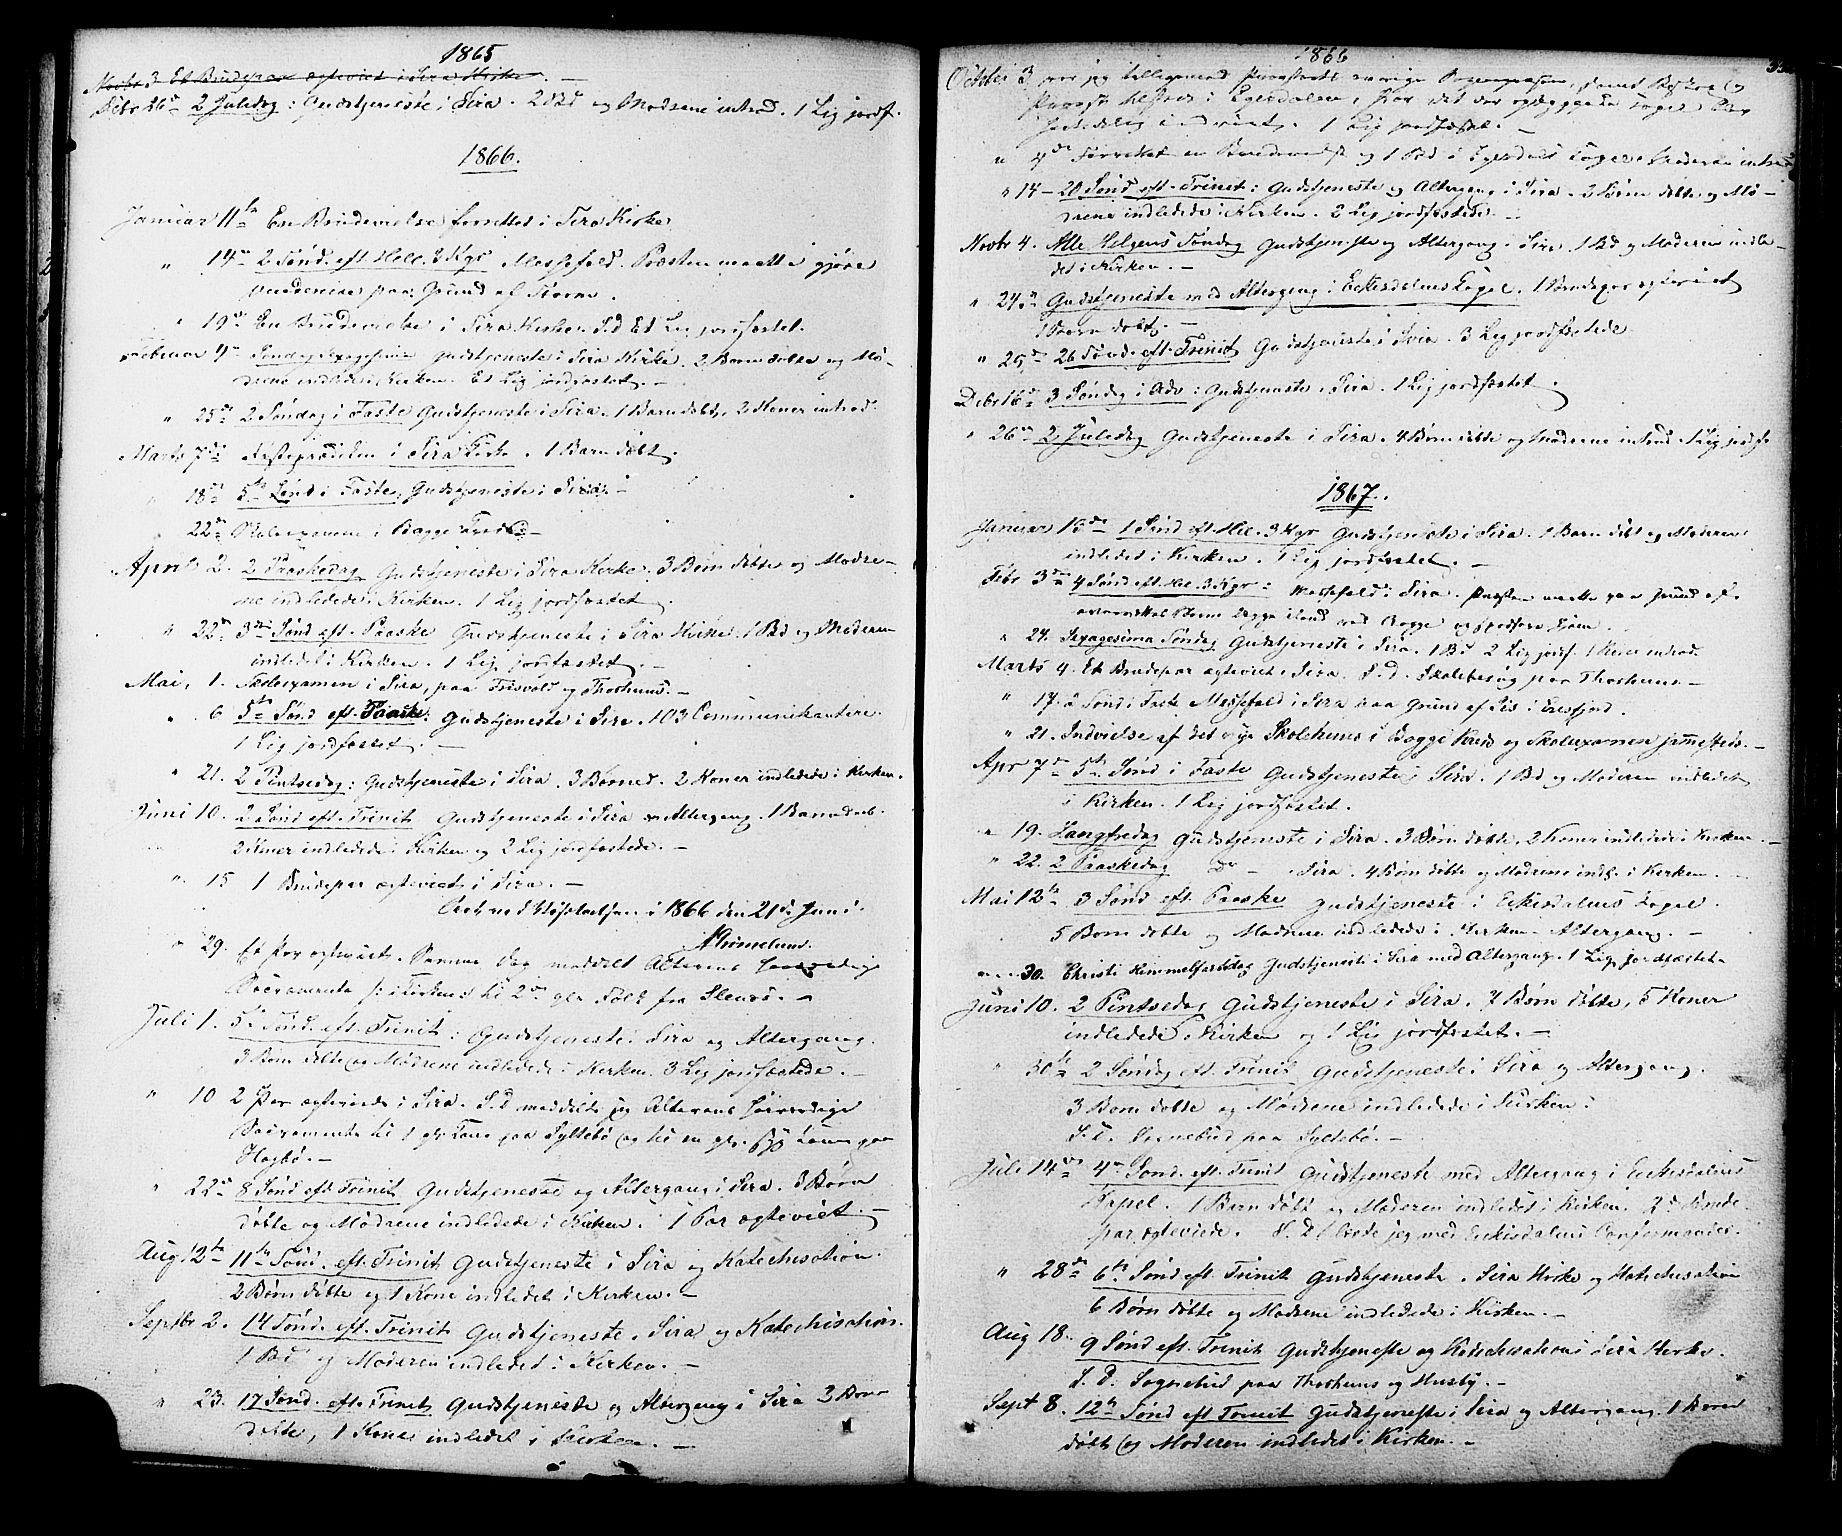 1865
Novbr 3 Et Brudepar ægteviet i Sira Kirke. —
Debr 26de 2 Juledag: Gudstjeneste i Sira. 2 Bd og Mødrene introd. 1 Lig jordf.
1866.
Januar 11te En Brudevielse forrettet i Sira Kirke
" 14de 2 Sønd. eft. Hell. 3 Kgr Messefald. Præsten maatte gjøre
paa Grund af Storm.
" 19de En Brudevielse i Sira Kirke. S.d. Et Lig jordfæstet.
Februar 4de Søndag Sexagesima Gudstjeneste i Sira Kirke. 2 Børn døbte og Mø-
drene indledede i Kirken. Et Lig jordfæstet. —
" 25de 2 Søndag i Faste Gudstjeneste i Sira. 1 Barn døbt, 2 Koner introd.
Marts 7de Fasteprædiken i Sira Kirke. 1 Barn døbt.
" 18de 5te Sønd i Faste, Gudstjeneste i Sira. —
22de Skolexamen i Bogge Kreds —
April 2. 2 Paaskedag Gudstjeneste i Sira Kirke. 3 Børn døbte og Mødre-
ne indledede i Kirken. 1 Lig jordfæstet
" 22de 3die Sønd eft. Paaske Gudstjeneste i Sira Kirke. 1 Bd og Moderen
indledet i Kirken. 1 Lig jordfæstet.
Mai, 1. Skolexamen i Sira, paa Frisvold og Thoshuus. —
" 6 5te Sønd eft. Paaske: Gudstjeneste i Sira. 103 Communikantere.
1 Lig jordfæstet. —
" 21. 2 Pintsedag: Gudstjeneste i Sira. 3 Børn d. 2 Koner indledede i Kirken.
Juni 10. 2 Sønd eft. Trinit Gudstjeneste i Sira og Altergang. 1 Barn døb.
2 Koner indledede i Kirken og 2 Lig jordfæstede. —
" 15 1 Brudepar ægteviet i Sira. —
i 1866 den 21de Juni.
Grimelund.
" 29. Et Par ægteviet. Samme Dag meddelt Alterens høiværdige
Sacramente i Kirken til 2de gle Folk fra
Juli 1. 5te Sønd. eft. Trinit: Gudstjeneste i Sira og Altergang.
3 Børn døbte og Mødrene indledede i Kirken. 3 Lig jordfæstede. —
" 10 2 Par ægteviede i Sira. S.d. meddelte jeg Alterens høiværdige
Sacramente til 1 gl. Kone paa Syltebø og til en gl. syg Kone paa
Hagbø. —
" 22de 8 Sønd eft Trinit Gudstjeneste og Altergang i Sira. 3 Børn
døbte og Mødrene indledede i Kirken. 1 Par ægteviet. —
Aug. 12te 11te Sønd. eft. Trinit Gudstjeneste i Sira og Katechisation.
2 Børn døbte og 1 Kone indledet i Kirken. —
Septbr 2. 14 Sønd. eft. Trinit Gudstjeneste i Sira og Katechisation.
1 Bd og Moderen indledet i Kirken. —
" 23. 17 Sønd. eft. Trinit Gudstjeneste og Altergang i Sira 3 Børn
døbte, 1 Kone indledet i Kirken. —
1866
October 3 var jeg
Provst
1 Lig jordfæstet. —
" 4de Forrettet en Brudevielse og 1 Bd i
" 14 — 20 Sønd eft. Trinit: Gudstjeneste og Altergang i Sira. 2 Børn døbte og Mø-
drene indledede i Kirken. 2 Lig jordfæstede. —
Novbr 4. Alle Helgens Søndag Gudstjeneste og Altergang i Sira. 1 Bd og Moderen indle-
det i Kirken. —
" 24de Gudstjeneste med Altergang i Eekisdalens Capel. 1 Brudepar ægteviet
1 Barn døbt. —
" 25de 26 Sønd. eft. Trinit Gudstjeneste i Sira. 3 Lig jordfæstede
Debr 16de 3 Søndag i Adv: Gudstjeneste i Sira. 1 Lig jordfæstet.
" 26de 2 Juledag Gudstjeneste i Sira. 4 Børn døbte og Mødrene introd. 1 Lig jordf.
1867.
Januar 13de 1 Sønd eft. Hel. 3 Kgr Gudstjeneste i Sira. 1 Barn døbt og Moderen
indledet i Kirken. 1 Lig jordfæstet. —
Febr 3de 4 Sønd eft. Hel. 3 Kgr: Messefald i Sira. Præsten maatte paa Grund af
Storm lægge iland ved Bogge og
" 24. Sexagesima Søndag Gudstjeneste i Sira. 1 Bd 2 Lig jordf. 1 Kone introd.
Marts 4. Et Brudepar ægteviet i Sira. S.d. Skolebesøg paa Thoshuus —
" 17. 2 Sønd i Faste Messefald i Sira paa Grund af Iis i Eresfjord.
" 21. Indvielse af det nye Skolehuus i Bogge Kreds og Skolexamen sammesteds. —
Apr 7de 5te Sønd i Faste Gudstjeneste i Sira. 1 Bd og Moderen indledet
i Kirken. 1 Lig jordfæstet.
" 19. Langfredag Gudstjeneste i Sira. 3 Børn døbte, 2 Koner indledede i Kirken. —
" 22. 2 Paaskedag Do — i Sira. 4 Børn døbte og Mødrene indl. i Kirken.
Mai 12te 3 Sønd eft. Paaske Gudstjeneste i Eekisdalens Capel.
5 Børn døbte og Mødrene indledede i Kirken. Altergang. —
" 30. Christi Himmelfartsdag Gudstjeneste i Sira med Altergang. 1 Lig jordfæstet.
Juni 10. 2 Pintsedag Gudstjeneste i Sira. 7 Børn døbte, 5 Koner
indledede i Kirken og 1 Lig jordfæstet. —
" 30te 2 Søndag eft. Trinit Gudstjeneste i Sira og Altergang.
3 Børn døbte og Mødrene indledede i Kirken:
S.d. Sognebud paa Syltebø. —
Juli 14de 4de Sønd. eft. Trinit Gudstjeneste med Altergang i Eekisdalens
Capel. 1 Barn døbt og Moderen indledet i Kirken. 2de Brude
par ægteviede. S.D. læste jeg med Eekisdalens Confirmander.
" 28de 6te Sønd eft Trinit Gudstjeneste i Sira Kirke og Katechisation
6 Børn døbte og Mødrene indledede i Kirken. —
Aug 18. 9 Sønd eft Trinit Gudstjeneste og Katechisation i Sira Kirke.
S.d. Sognebud paa Thoshuus og Husby. —
Sept 8. 12te Sønd eft Trinit Gudstjeneste i Sira og Altergang. 1 Barn
døbt og Moderen indledet i Kirken. —